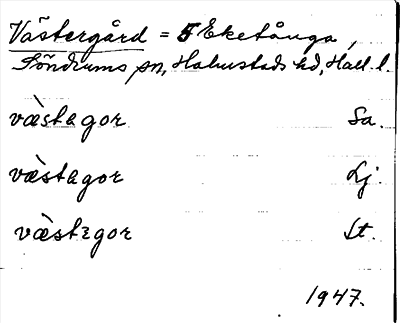 Västergård = 5 Eketånga,
Söndrums sn, Halmstads hd, Hall. l.
vä̀stagor Sa.
vä̀stagor Lj.
vä̀stagor St.
1947.